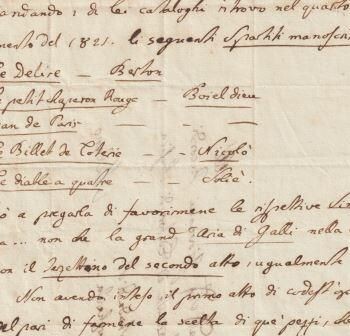 andando; di lei cataloghi ritrovo nel quarto
mento del 1821. li seguenti Spartiti manoscri
e Delire — Berton
e petit chaperon Rouge — Boieldieu
ean de Paris — — —
e Billet de Loterie — Nicolò
e diable a quatre — Solié.
ò a pregarla di favorirmene le rispettive
a... non che la grand Aria di Galli nella
on il Terzettino del secondo atto, ugualmente
Non avendo inteso il primo atto di codest'
al pari di farmene la scelta di que' pezzi,